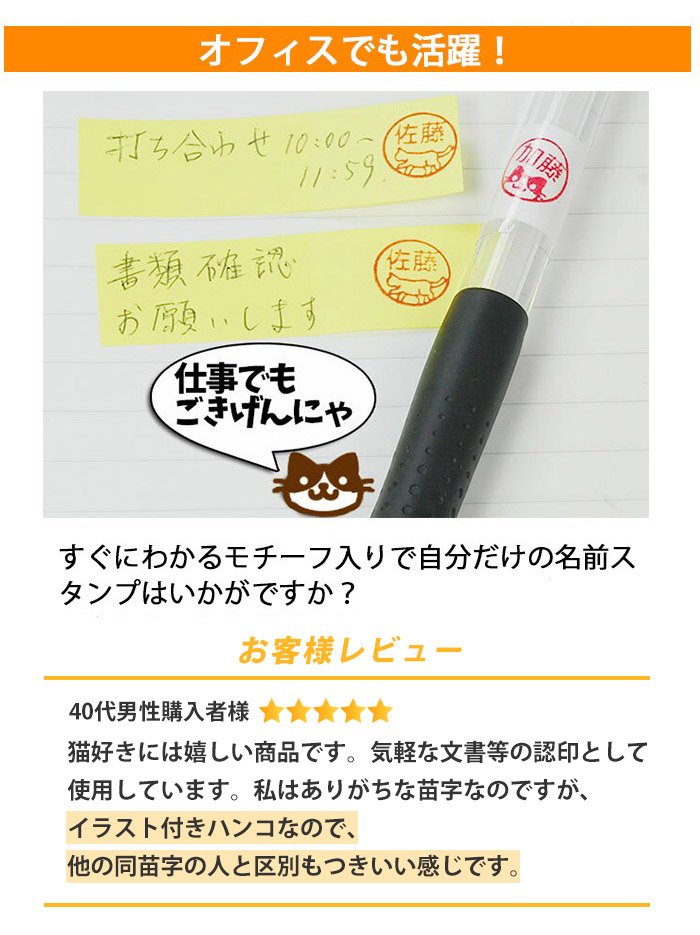 オフィスでも活躍！
打ち合わせ 10:00〜
11:59.
佐藤
加藤
書類確認
お願いします
佐藤
仕事でも
ごきげんにゃ
すぐにわかるモチーフ入りで自分だけの名前ス
タンプはいかがですか？
お客様レビュー
40代男性購入者様 ★★★★★
猫好きには嬉しい商品です。気軽な文書等の認印として
使用しています。私はありがちな苗字なのですが、
イラスト付きハンコなので、
他の同苗字の人と区別もつきいい感じです。